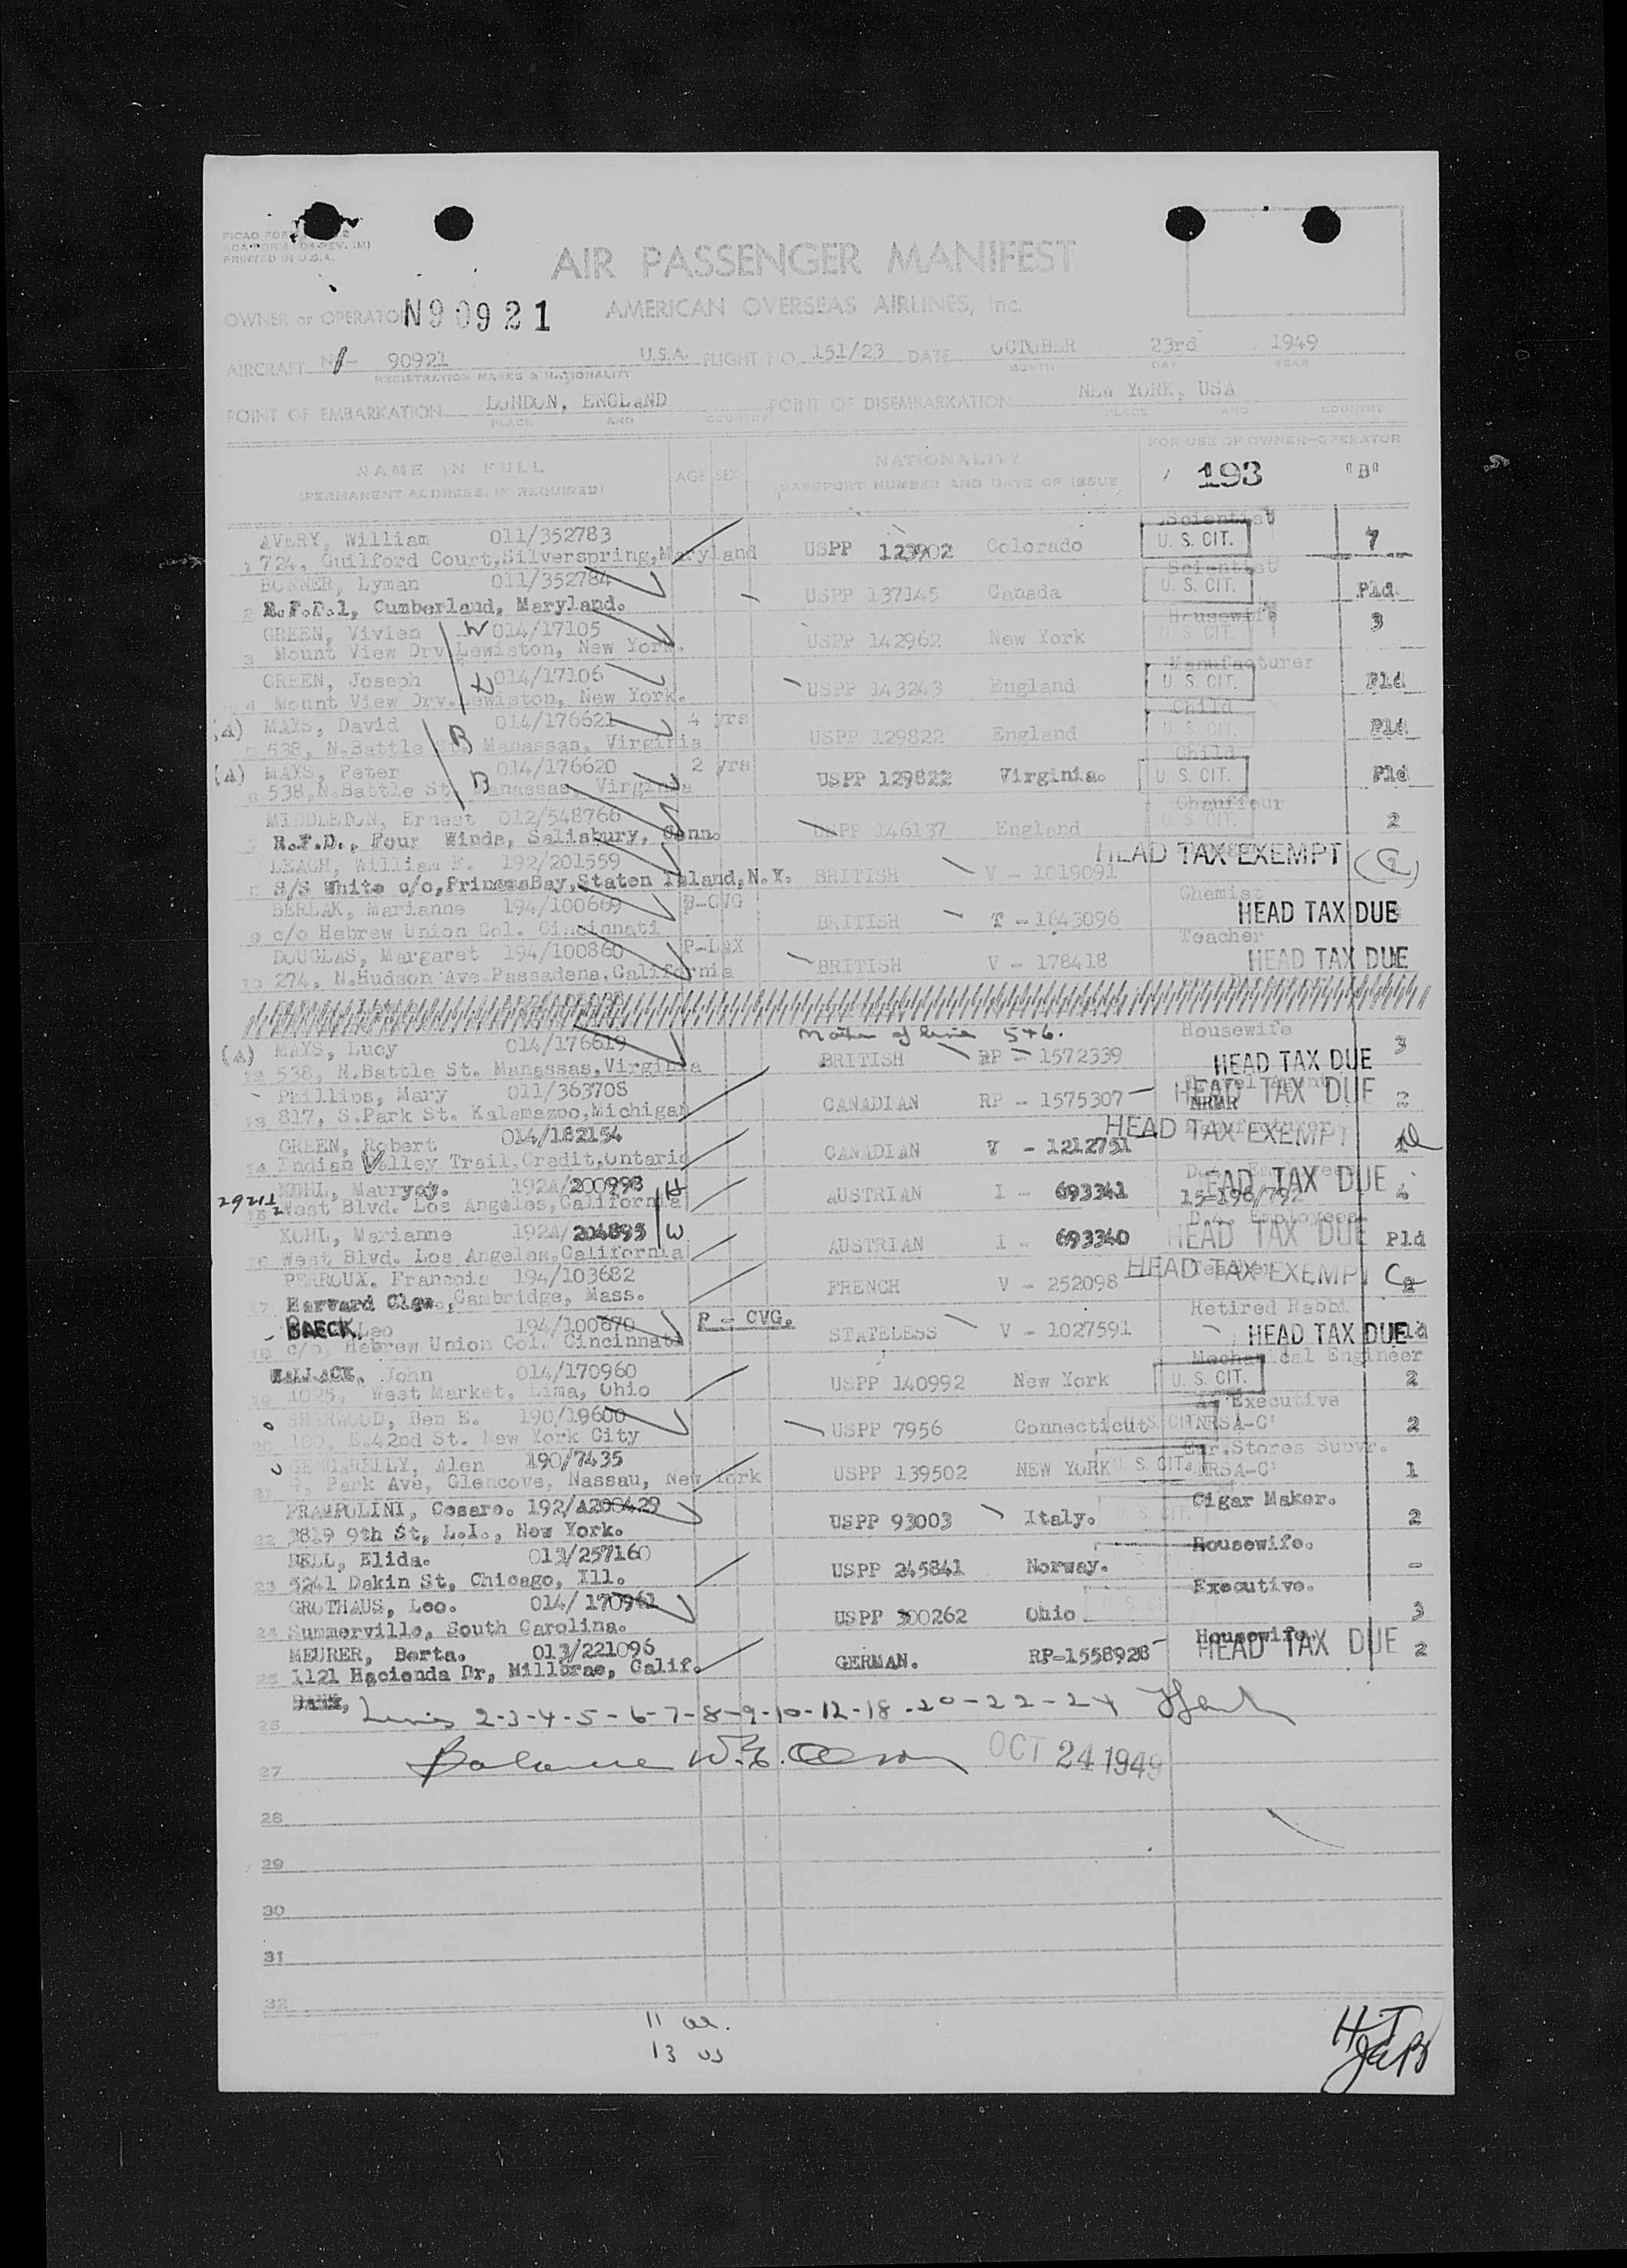 PICAO FOR 2
PRINTED IN U.S.A.
AIR PASSENGER MANIFEST
OWNER or OPERATOR N90921 AMERICAN OVERSEAS AIRLINES, Inc.
AIRCRAFT N 90921 U.S.A. FLIGHT NO. 151/23 DATE OCTOBER 23rd 1949
REGISTRATION MARKS & NATIONALITY MONTH DAY YEAR
POINT OF EMBARKATION LONDON, ENGLAND POINT OF DISEMBARKATION NEW YORK, USA
PLACE AND COUNTRY PLACE AND COUNTRY
FOR USE OF OWNER-OPERATOR
NAME IN FULL AGE SEX NATIONALITY 193 "B"
(PERMANENT ADDRESS, IF REQUIRED) PASSPORT NUMBER AND DATE OF ISSUE
AVERY, William 011/352783 Scientist
1 724, Guilford Court,Silverspring,Maryland USPP 123902 Colorado U. S. CIT. 7
BONNER, Lyman 011/352784 Scientist
2 R.F.D.1, Cumberland, Maryland. USPP 137145 Canada U. S. CIT. Pld
GREEN, Vivien W 014/17105 Housewife 3
3 Mount View Drv Lewiston, New York. USPP 142962 New York U. S. CIT.
GREEN, Joseph 014/17106 Manufacturer
4 Mount View Drv.Lewiston, New York. USPP 143243 England U. S. CIT. Pld
(A) MAYS, David B 014/176621 4 yrs Child
5 538, N.Battle St. Manassas, Virginia USPP 129822 England U. S. CIT. Pld
(A) MAYS, Peter B 014/176620 2 yrs Child
6 538,N.Battle St. Manassas, Virginia USPP 129822 Virginia. U. S. CIT. Pld
MIDDLETON, Ernest 012/548766 Chauffeur
7 R.F.D., Four Winds, Salisbury, Conn. USPP 146137 England U. S. CIT. 2
LEACH, William F. 192/201559 HEAD TAX EXEMPT
8 S/S White c/o,PrincessBay,Staten Island,N.Y. BRITISH V - 1019091
BERLAK, Marianne 194/100669 P-CVG Chemist
9 c/o Hebrew Union Col. Cincinnati BRITISH T - 1643096 HEAD TAX DUE
DOUGLAS, Margaret 194/100860 P-LAX Teacher
10 274, N.Hudson Ave.Pasadena,California BRITISH V - 178418 HEAD TAX DUE
Mother of line 5+6.
(A) MAYS, Lucy 014/176619 Housewife 3
12 538, N.Battle St. Manassas,Virginia BRITISH RP - 1572339 HEAD TAX DUE
Phillips, Mary 011/363708 HEAD TAX DUE
13 817, S.Park St. Kalamazoo,Michigan CANADIAN RP - 1575307 NRMR 2
GREEN, Robert 014/182154 Manufacturer HEAD TAX EXEMPT
14 Indian Valley Trail,Credit,Ontario CANADIAN V - 1212751
KOHL, 192A/200998 H HEAD TAX DUE
29212 15 West Blvd. Los Angeles,California AUSTRIAN I - 693341 15-196/792 4
KOHL, Marianne 192A/204895 W D.A. Employees
16 West Blvd. Los Angeles,California AUSTRIAN I - 693340 HEAD TAX DUE Pld
PERROUX, Francois 194/103682 HEAD TAX EXEMPT
17 Harvard Clgw.,Cambridge, Mass. FRENCH V - 252098 2
BAECK, Leo 194/100670 P - CVG. Retired Rabbi
18 c/o, Hebrew Union Col. Cincinnati STATELESS V - 1027591 HEAD TAX DUE Pld
WALLACE, John 014/170960 Mechanical Engineer
19 1025, West Market, Lima, Ohio USPP 140992 New York U. S. CIT. 2
SHERWOOD, Ben E. 190/19600 Executive
20 100, E.42nd St. New York City USPP 7956 Connecticut U. S. CIT. NRSA-C' 2
GENGARELLY, Alen 190/7435 Stores Supvr.
21 9, Park Ave, Glencove, Nassau, New York USPP 139502 NEW YORK U. S. CIT. NRSA-C' 1
PRAMPOLINI, Cesare. 192/A200429 Cigar Maker.
22 3819 9th St, L.I., New York. USPP 93003 Italy. U. S. CIT. 2
BELL, Elida. 013/257160 Housewife.
23 5241 Dakin St, Chicago, Ill. USPP 245841 Norway. -
GROTHAUS, Leo. 014/ 170961 Executive.
24 Summerville, South Carolina. USPP 300262 Ohio U. S. CIT. 3
MEURER, Berta. 013/221096 Housewife. HEAD TAX DUE
25 1121 Hacienda Dr, Millbrae, Calif. GERMAN. RP-1558928 2
26 Lines 2-3-4-5-6-7-8-9-10-12-18-20-22-24
27 Balance W.E. Olson OCT 24 1949
28
29
30
31
32
11 al.
13 us
H.T.